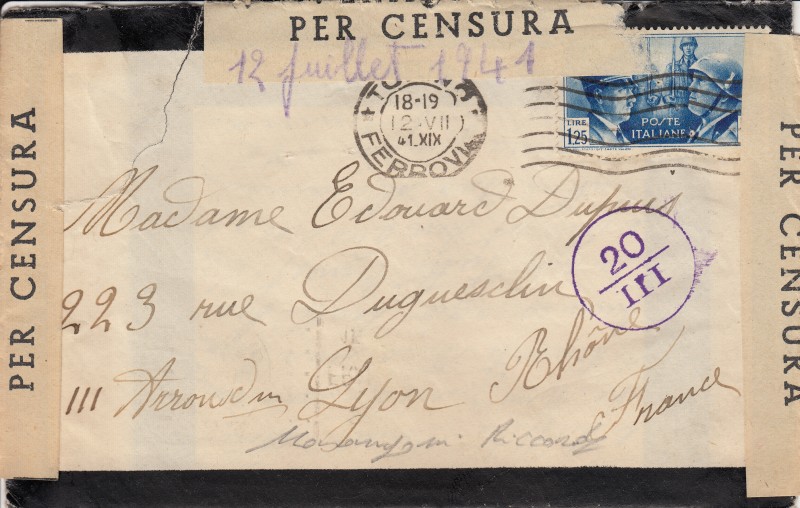 PER CENSURA
12 juillet 1941
18-19
12·VII
41.XIX
FERROVIA
POSTE
ITALIANE
LIRE
1,25
PER CENSURA
PER CENSURA
Madame Edouard Dupuis
20
III
223 rue Duguesclin
III Arrondm Lyon Rhône
France